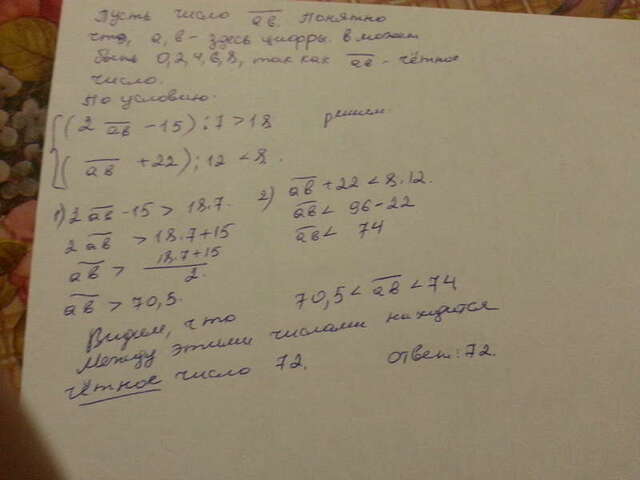 Пусть число ab. Понятно
что, a, b - здесь цифры. b может
быть 0,2,4,6,8, так как ab - чётное
число.
По условию.
{(2 ab - 15) : 7 > 18 решаем
(ab + 22) : 12 < 8.
1) 2 ab - 15 > 18.7. 2) ab + 22 < 8.12.
2 ab > 18.7+15 ab < 96-22
ab > 18.7+15 / 2. ab < 74
ab > 70,5. 70,5 < ab < 74
Видим, что
Между этими числами находится
чётное число 72. Ответ: 72.